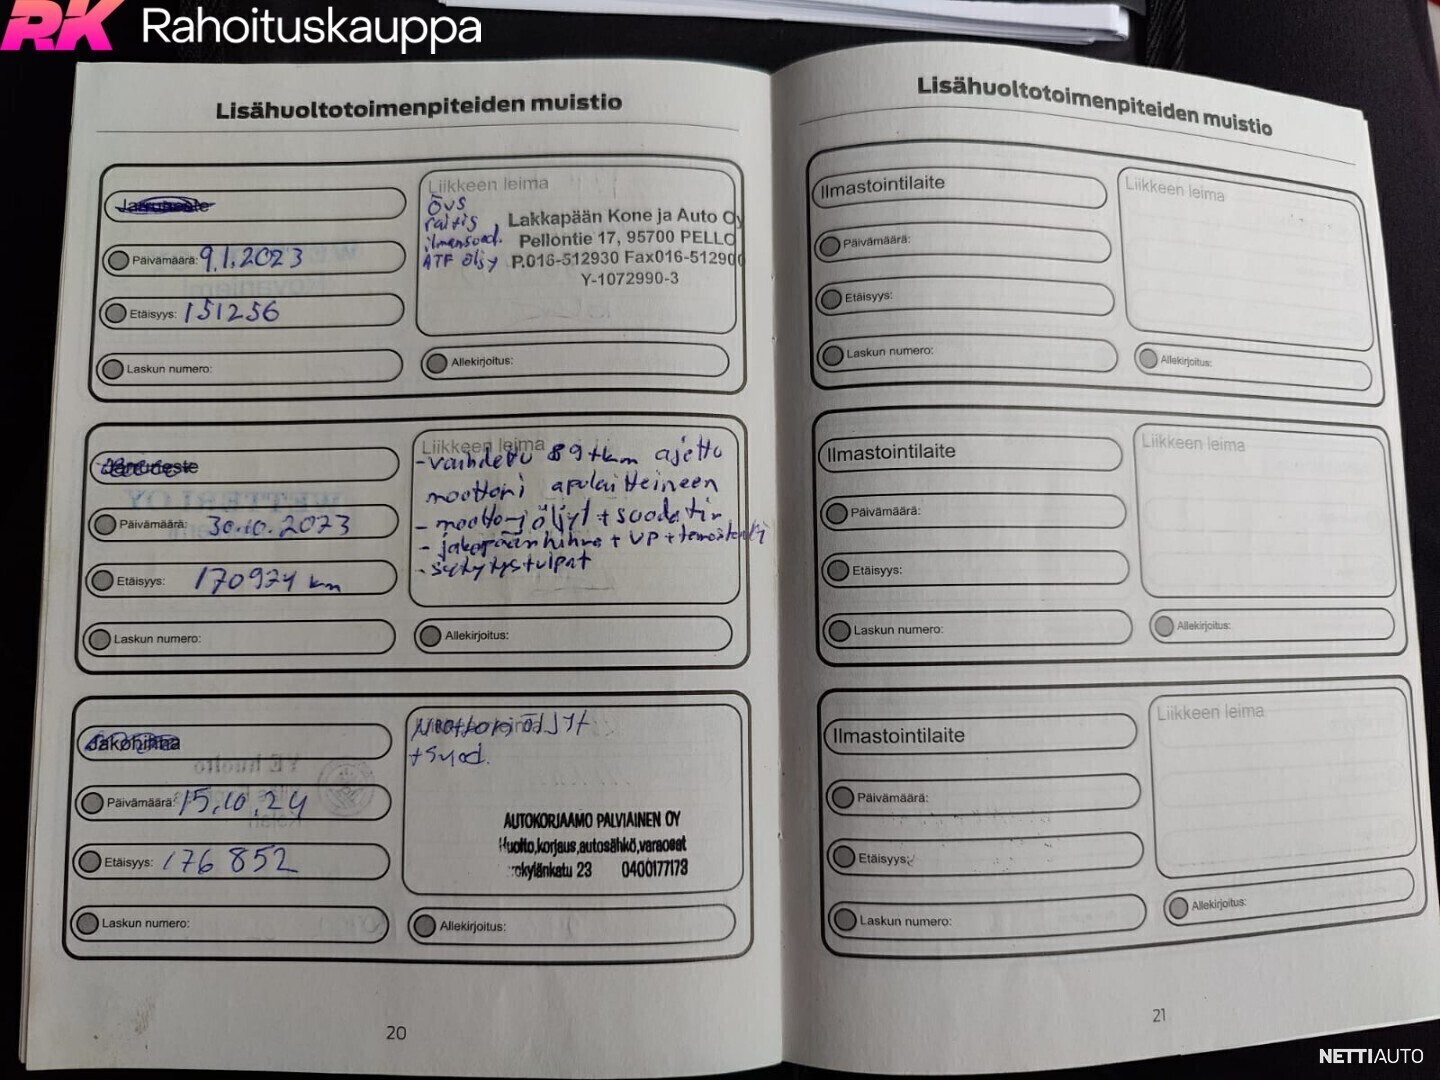 RK Rahoituskauppa
Lisähuoltotoimenpiteiden muistio
Jarruneste
Päivämäärä: 9.1.2023
Etäisyys: 151256
Laskun numero:
Liikkeen leima
ÖVS
raitis
ilmansuod.
ATF öljy
Lakkapään Kone ja Auto Oy
Pellontie 17, 95700 PELLO
P.016-512930 Fax016-512900
Y-1072990-3
Allekirjoitus:
Jarruneste
Päivämäärä: 30.10.2023
Etäisyys: 170924 km
Laskun numero:
Liikkeen leima
-vaihdettu 89tkm ajettu
moottori apulaitteineen
- moottoriöljyt + suodatin
- jakopäänhihna + VP + termostaatti
- sytytystulpat
Allekirjoitus:
Jakohihna
Päivämäärä: 15.10.24
Etäisyys: 176852
Laskun numero:
Moottoriöljyt
+ suod.
AUTOKORJAAMO PALVIAINEN OY
Huolto,korjaus,autosähkö,varaosat
kylänkatu 23 0400177173
Allekirjoitus:
20
Lisähuoltotoimenpiteiden muistio
Ilmastointilaite
Päivämäärä:
Etäisyys:
Laskun numero:
Liikkeen leima
Allekirjoitus:
Ilmastointilaite
Päivämäärä:
Etäisyys:
Laskun numero:
Liikkeen leima
Allekirjoitus:
Ilmastointilaite
Päivämäärä:
Etäisyys:
Laskun numero:
Liikkeen leima
Allekirjoitus:
21
NETTIAUTO